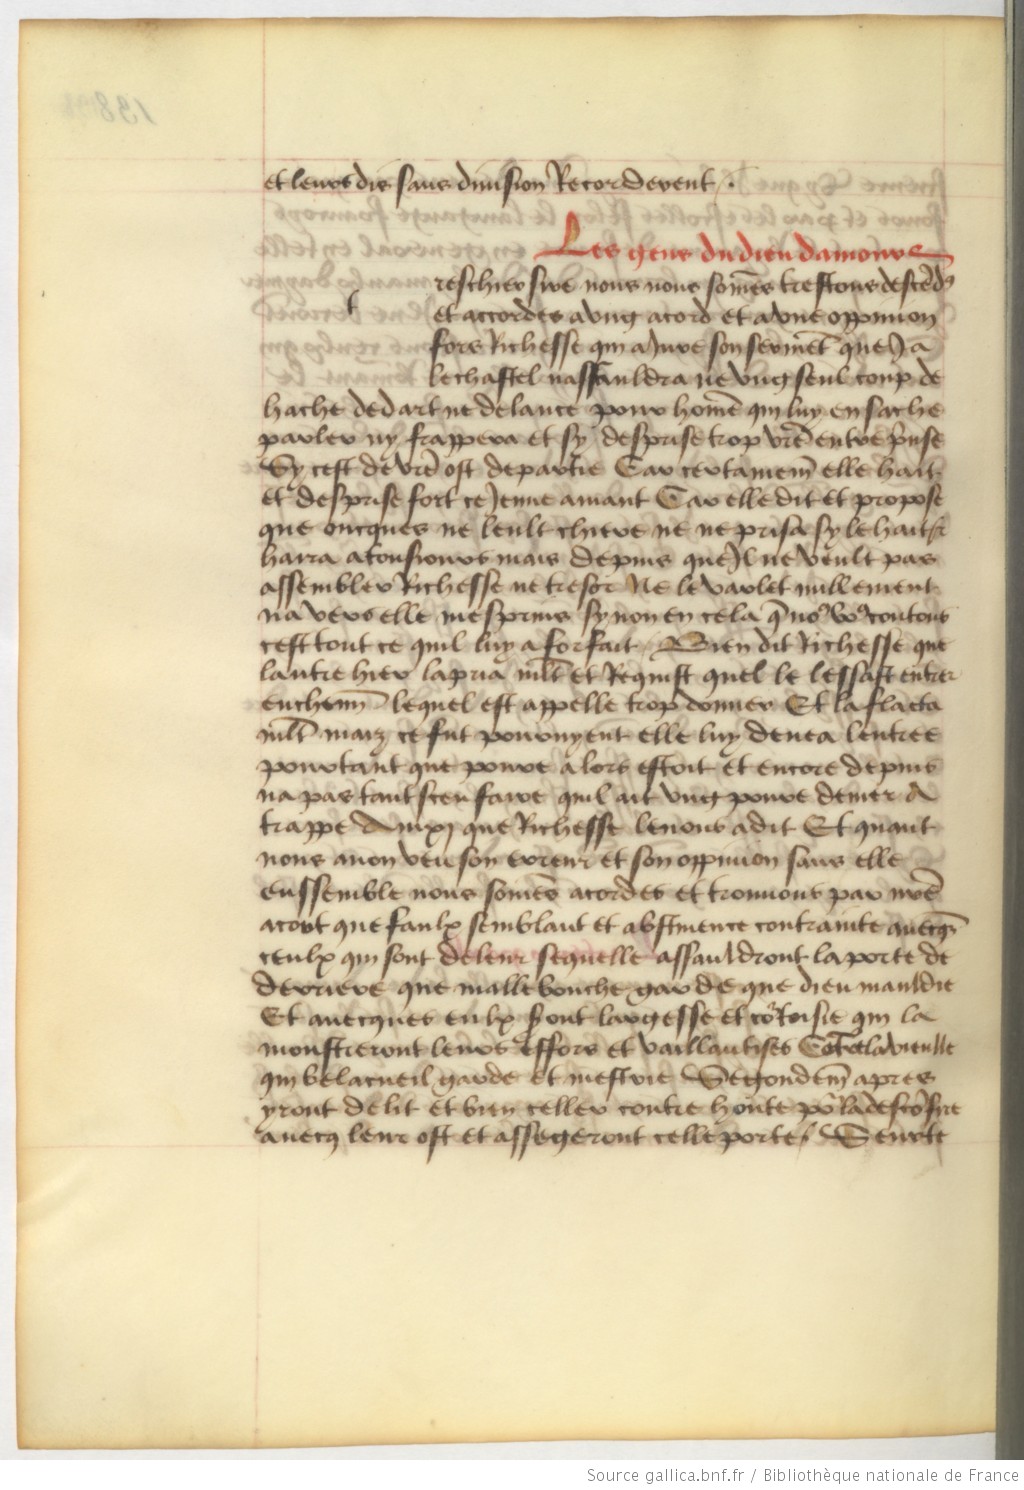 et leurs dis sans diuision Recorderent .
Les gens du dieu damours
t
reschier sire nous nous som̄es trestous descēds
et accordes a vng acord et a vne oppinion
fors Richesse qui a Jure son serm̄et que Ja
le chastel nassauldra ne vng seul coup de
hache de dart ne de lance pour hom̄e qui luy en sache
parler ny frappera et sy desprise trop vrē entreprinse
Sy cest de vrē ost departie Car certainem̄ elle hait
et desprise fort ce Jeune amant Car elle dit et propose
que oncques ne leult chiere ne ne prisa sy le hait et
harra a tousiours mais depuis que Jl ne veult pas
assembler Richesse ne tresor Ne le varlet nullement
na vers elle mesprins sy non en cela
cest tout ce quil luy a forfait Bien dit Richesse que
lautre hier la pria mlt et Requist quel le lessast entrer
en chemī lequel est appelle trop donner Et la flacta
mlt maiz ce fut pour nyent elle luy denea lentree
pourtant que poure alors estoit et encore depuis
na pas tant sceu faire quil ait vng poure denier A
trappe Ainxj que Richesse le nous a dit Et quant
nous auon veu son erreur et son oppinion sans elle
enssemble nous som̄es acordes et trouuons par nrē
acort que faulx semblant et abstinence contrainte auecq̄
ceulx qui sont de leur sequelle assauldront la porte de
derriere que malle bouche garde que dieu mauldie
Et auecques eulx sront largesse et cortoisie qui la
monstreront leurs effors et vaillantises Cōtre la vieille
qui belacueil garde et mestrie Segondem̄ apres
yront delit et bien celler contre honte
auecq leur ost et assegeront celle porte / Senote
138